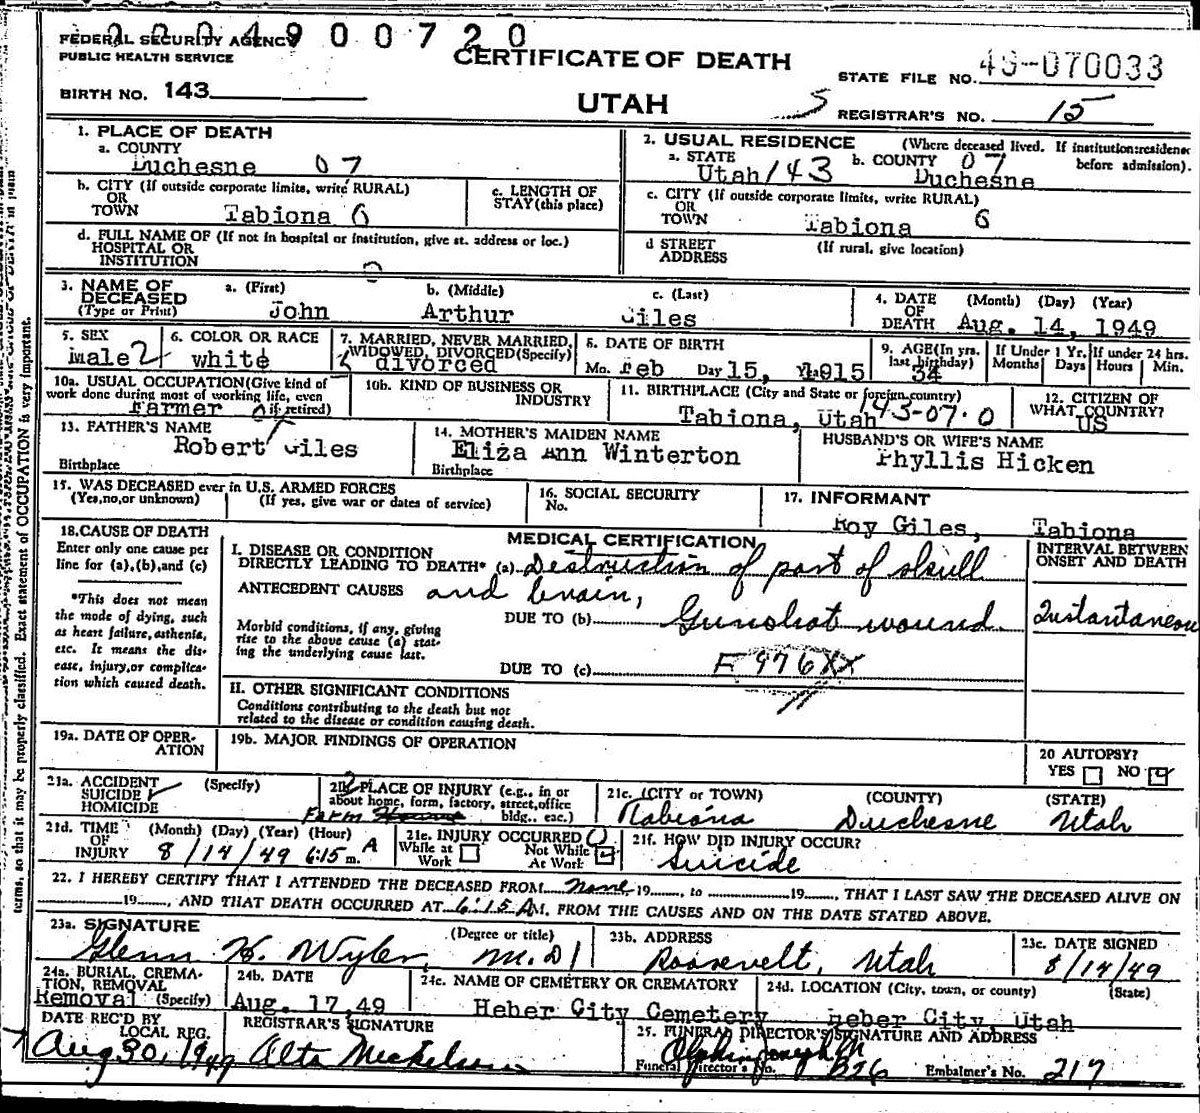 2004900720
FEDERAL SECURITY AGENCY
PUBLIC HEALTH SERVICE
CERTIFICATE OF DEATH
STATE FILE NO. 49-070033
BIRTH NO. 143
UTAH
5 REGISTRAR'S NO. 15
1. PLACE OF DEATH
a. COUNTY
Duchesne 07
2. USUAL RESIDENCE (Where deceased lived. If institution:residence before admission).
a. STATE Utah/43 b. COUNTY 07 Duchesne
b. CITY (If outside corporate limits, write RURAL)
OR
TOWN Tabiona 6
c. LENGTH OF STAY (this place)
c. CITY (If outside corporate limits, write RURAL)
OR
TOWN Tabiona 6
d. FULL NAME OF (If not in hospital or institution, give st. address or loc.)
HOSPITAL OR
INSTITUTION
d STREET ADDRESS (If rural, give location)
3. NAME OF DECEASED (Type or Print)
a. (First) b. (Middle) c. (Last)
John Arthur Giles
4. DATE OF DEATH (Month) (Day) (Year)
Aug. 14, 1949
5. SEX
Male 2
6. COLOR OR RACE
white
7. MARRIED, NEVER MARRIED, WIDOWED, DIVORCED (Specify)
divorced
8. DATE OF BIRTH
Mo. Feb Day 15, 1915
9. AGE (In yrs. last birthday)
34
If Under 1 Yr. Months Days
If under 24 hrs. Hours Min.
10a. USUAL OCCUPATION (Give kind of work done during most of working life, even if retired)
Farmer
10b. KIND OF BUSINESS OR INDUSTRY
11. BIRTHPLACE (City and State or foreign country)
Tabiona, Utah 43-07-0
12. CITIZEN OF WHAT COUNTRY?
US
13. FATHER'S NAME
Robert Giles
Birthplace
14. MOTHER'S MAIDEN NAME
Eliza Ann Winterton
Birthplace
HUSBAND'S OR WIFE'S NAME
Phyllis Hicken
15. WAS DECEASED ever in U.S. ARMED FORCES
(Yes,no,or unknown) (If yes, give war or dates of service)
16. SOCIAL SECURITY No.
17. INFORMANT
Roy Giles, Tabiona
18. CAUSE OF DEATH
Enter only one cause per line for (a), (b), and (c)
*This does not mean the mode of dying, such as heart failure, asthenia, etc. It means the disease, injury, or complication which caused death.
MEDICAL CERTIFICATION
I. DISEASE OR CONDITION
DIRECTLY LEADING TO DEATH* (a) Destruction of part of skull
ANTECEDENT CAUSES and brain,
Morbid conditions, if any, giving rise to the above cause (a) stating the underlying cause last.
DUE TO (b) Gunshot wound
DUE TO (c) E 976XX
INTERVAL BETWEEN ONSET AND DEATH
Instantaneous
II. OTHER SIGNIFICANT CONDITIONS
Conditions contributing to the death but not related to the disease or condition causing death.
19a. DATE OF OPERATION
19b. MAJOR FINDINGS OF OPERATION
20 AUTOPSY?
YES NO
21a. ACCIDENT (Specify)
SUICIDE ✓
HOMICIDE
21b. PLACE OF INJURY (e.g., in or about home, form, factory, street, office bldg., eac.)
Farm
21c. (CITY or TOWN) (COUNTY) (STATE)
Tabiona Duchesne Utah
21d. TIME OF INJURY (Month) (Day) (Year) (Hour)
8/14/49 6:15 A m.
21e. INJURY OCCURRED
While at Work Not While At Work
21f. HOW DID INJURY OCCUR?
Suicide
22. I HEREBY CERTIFY THAT I ATTENDED THE DECEASED FROM None 19, to 19, THAT I LAST SAW THE DECEASED ALIVE ON
19, AND THAT DEATH OCCURRED AT 6:15 A M. FROM THE CAUSES AND ON THE DATE STATED ABOVE.
23a. SIGNATURE (Degree or title)
Glenn H. Wyler, M.D.
23b. ADDRESS
Roosevelt, Utah
23c. DATE SIGNED
8/14/49
24a. BURIAL, CREMATION, REMOVAL (Specify)
Removal
24b. DATE
Aug. 17, 49
24c. NAME OF CEMETERY OR CREMATORY
Heber City Cemetery
24d. LOCATION (City, town, or county) (State)
Heber City, Utah
DATE REC'D BY LOCAL REG.
Aug 30, 1949
REGISTRAR'S SIGNATURE
Alta Mickelson
25. FUNERAL DIRECTOR'S SIGNATURE AND ADDRESS
Olphin
Funeral Director's No. 326 Embalmer's No. 217
terms, so that it may be properly classified. Exact statement of OCCUPATION is very important.